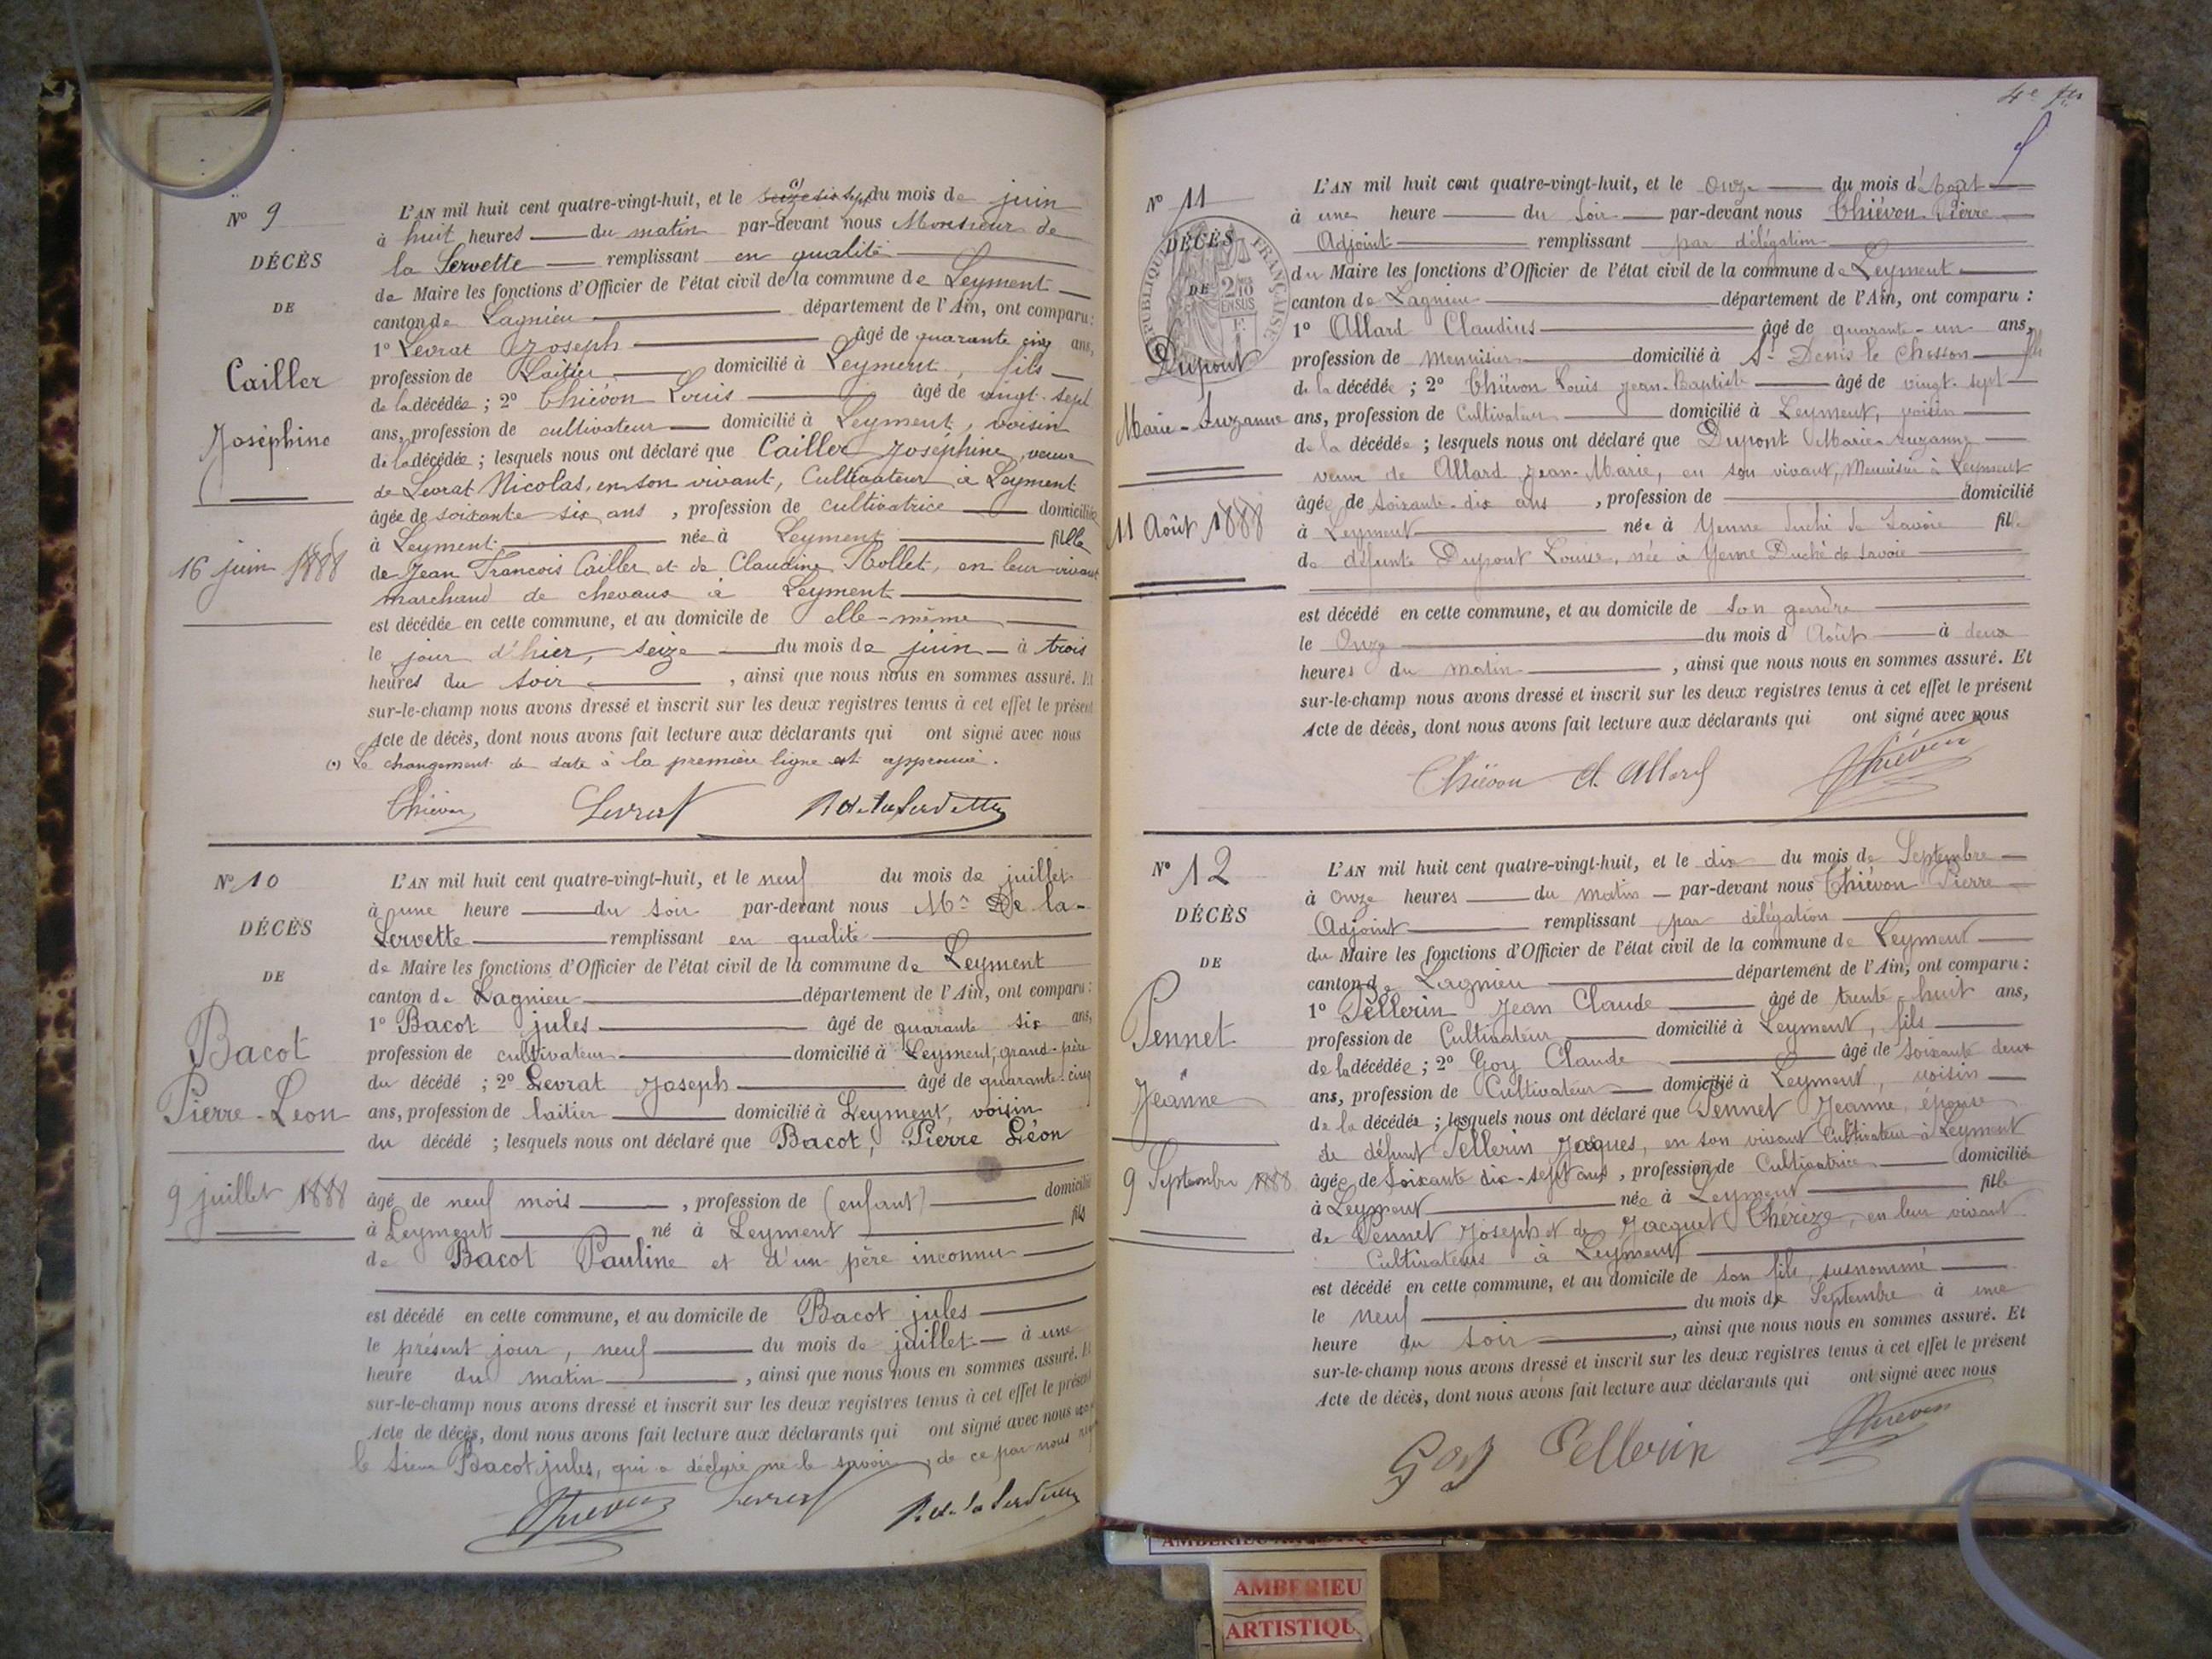 Nº 9
DÉCÈS
DE
Cailler
Joséphine
16 juin 1888
L'AN mil huit cent quatre-vingt-huit, et le dix sept du mois de juin
à huit heures du matin par-devant nous Monsieur de
la Servette remplissant en qualité
de Maire les fonctions d'Officier de l'état civil de la commune de Leyment
canton de Lagnieu département de l'Ain, ont comparu :
1º Levrat Joseph âgé de quarante cinq ans,
profession de Laitier domicilié à Leyment, fils
de la décédée ; 2º Chiévon Louis âgé de vingt-sept
ans, profession de cultivateur domicilié à Leyment, voisin
de la décédée ; lesquels nous ont déclaré que Cailler Joséphine, veuve
de Levrat Nicolas, en son vivant, Cultivateur à Leyment
âgée de soixante six ans, profession de cultivatrice domiciliée
à Leyment née à Leyment fille
de Jean François Cailler et de Claudine Rollet, en leur vivant
marchand de chevaux à Leyment
est décédée en cette commune, et au domicile de elle-même
le jour d'hier, seize du mois de juin à trois
heures du soir, ainsi que nous nous en sommes assuré. Et
sur-le-champ nous avons dressé et inscrit sur les deux registres tenus à cet effet le présent
Acte de décès, dont nous avons fait lecture aux déclarants qui ont signé avec nous
(1) Le changement de date à la première ligne est approuvé.
Chiévon Levrat R de la Servette
Nº 10
DÉCÈS
DE
Bacot
Pierre-Leon
9 juillet 1888
L'AN mil huit cent quatre-vingt-huit, et le neuf du mois de juillet
à une heure du soir par-devant nous Mr De la-
Servette remplissant en qualité
de Maire les fonctions d'Officier de l'état civil de la commune de Leyment
canton de Lagnieu département de l'Ain, ont comparu :
1º Bacot jules âgé de quarante six ans,
profession de cultivateur domicilié à Leyment, grand-père
du décédé ; 2º Levrat Joseph âgé de quarante-cinq
ans, profession de laitier domicilié à Leyment, voisin
du décédé ; lesquels nous ont déclaré que Bacot, Pierre Léon
âgé de neuf mois, profession de (enfant) domicilié
à Leyment né à Leyment fils
de Bacot Pauline et d'un père inconnu
est décédé en cette commune, et au domicile de Bacot jules
le présent jour, neuf du mois de juillet à une
heure du matin, ainsi que nous nous en sommes assuré. Et
sur-le-champ nous avons dressé et inscrit sur les deux registres tenus à cet effet le présent
Acte de décès, dont nous avons fait lecture aux déclarants qui ont signé avec nous
le Sieur Bacot jules, qui a déclaré ne le savoir, de ce par nous
Chiévon Levrat R. de la Servette
4e
Nº 11
RÉPUBLIQUE FRANÇAISE
2/10 EN SUS
DÉCÈS
DE
Dupont
Marie-Suzanne
11 Août 1888
L'AN mil huit cent quatre-vingt-huit, et le Onze du mois d'Août
à une heure du Soir par-devant nous Chiévon Pierre
Adjoint remplissant par délégation
du Maire les fonctions d'Officier de l'état civil de la commune de Leyment
canton de Lagnieu département de l'Ain, ont comparu :
1º Allard Claudius âgé de quarante-un ans,
profession de Menuisier domicilié à St Denis le Chosson fils
de la décédée ; 2º Chiévon Louis Jean-Baptiste âgé de vingt-sept
ans, profession de Cultivateur domicilié à Leyment, voisin
de la décédée ; lesquels nous ont déclaré que Dupont Marie-Suzanne
veuve de Allard Jean-Marie, en son vivant, Menuisier à Leyment
âgée de soixante-dix ans, profession de domicilié
à Leyment née à Yenne Duché de Savoie fille
de défunte Dupont Louise, née à Yenne Duché de Savoie
est décédé en cette commune, et au domicile de son gendre
le Onze du mois d'Août à deux
heures du matin, ainsi que nous nous en sommes assuré. Et
sur-le-champ nous avons dressé et inscrit sur les deux registres tenus à cet effet le présent
Acte de décès, dont nous avons fait lecture aux déclarants qui ont signé avec nous
Chiévon Cl. Allard Chiévon
Nº 12
DÉCÈS
DE
Pennet
Jeanne
9 Septembre 1888
L'AN mil huit cent quatre-vingt-huit, et le dix du mois de Septembre
à Onze heures du matin par-devant nous Chiévon Pierre
Adjoint remplissant par délégation
du Maire les fonctions d'Officier de l'état civil de la commune de Leyment
canton de Lagnieu département de l'Ain, ont comparu :
1º Pellerin Jean Claude âgé de trente-huit ans,
profession de Cultivateur domicilié à Leyment, fils
de la décédée ; 2º Goy Claude âgé de soixante deux
ans, profession de Cultivateur domicilié à Leyment, voisin
de la décédée ; lesquels nous ont déclaré que Pennet Jeanne, épouse
de défunt Pellerin Jacques, en son vivant Cultivateur à Leyment
âgée de soixante dix-sept ans, profession de Cultivatrice domiciliée
à Leyment née à Leyment fille
de Pennet Joseph et de Jacquet Thérèze, en leur vivant
Cultivateurs à Leyment
est décédé en cette commune, et au domicile de son fils susnommé
le neuf du mois de Septembre à une
heure du soir, ainsi que nous nous en sommes assuré. Et
sur-le-champ nous avons dressé et inscrit sur les deux registres tenus à cet effet le présent
Acte de décès, dont nous avons fait lecture aux déclarants qui ont signé avec nous
Goy Pellerin Chiévon
AMBERIEU
ARTISTIQU